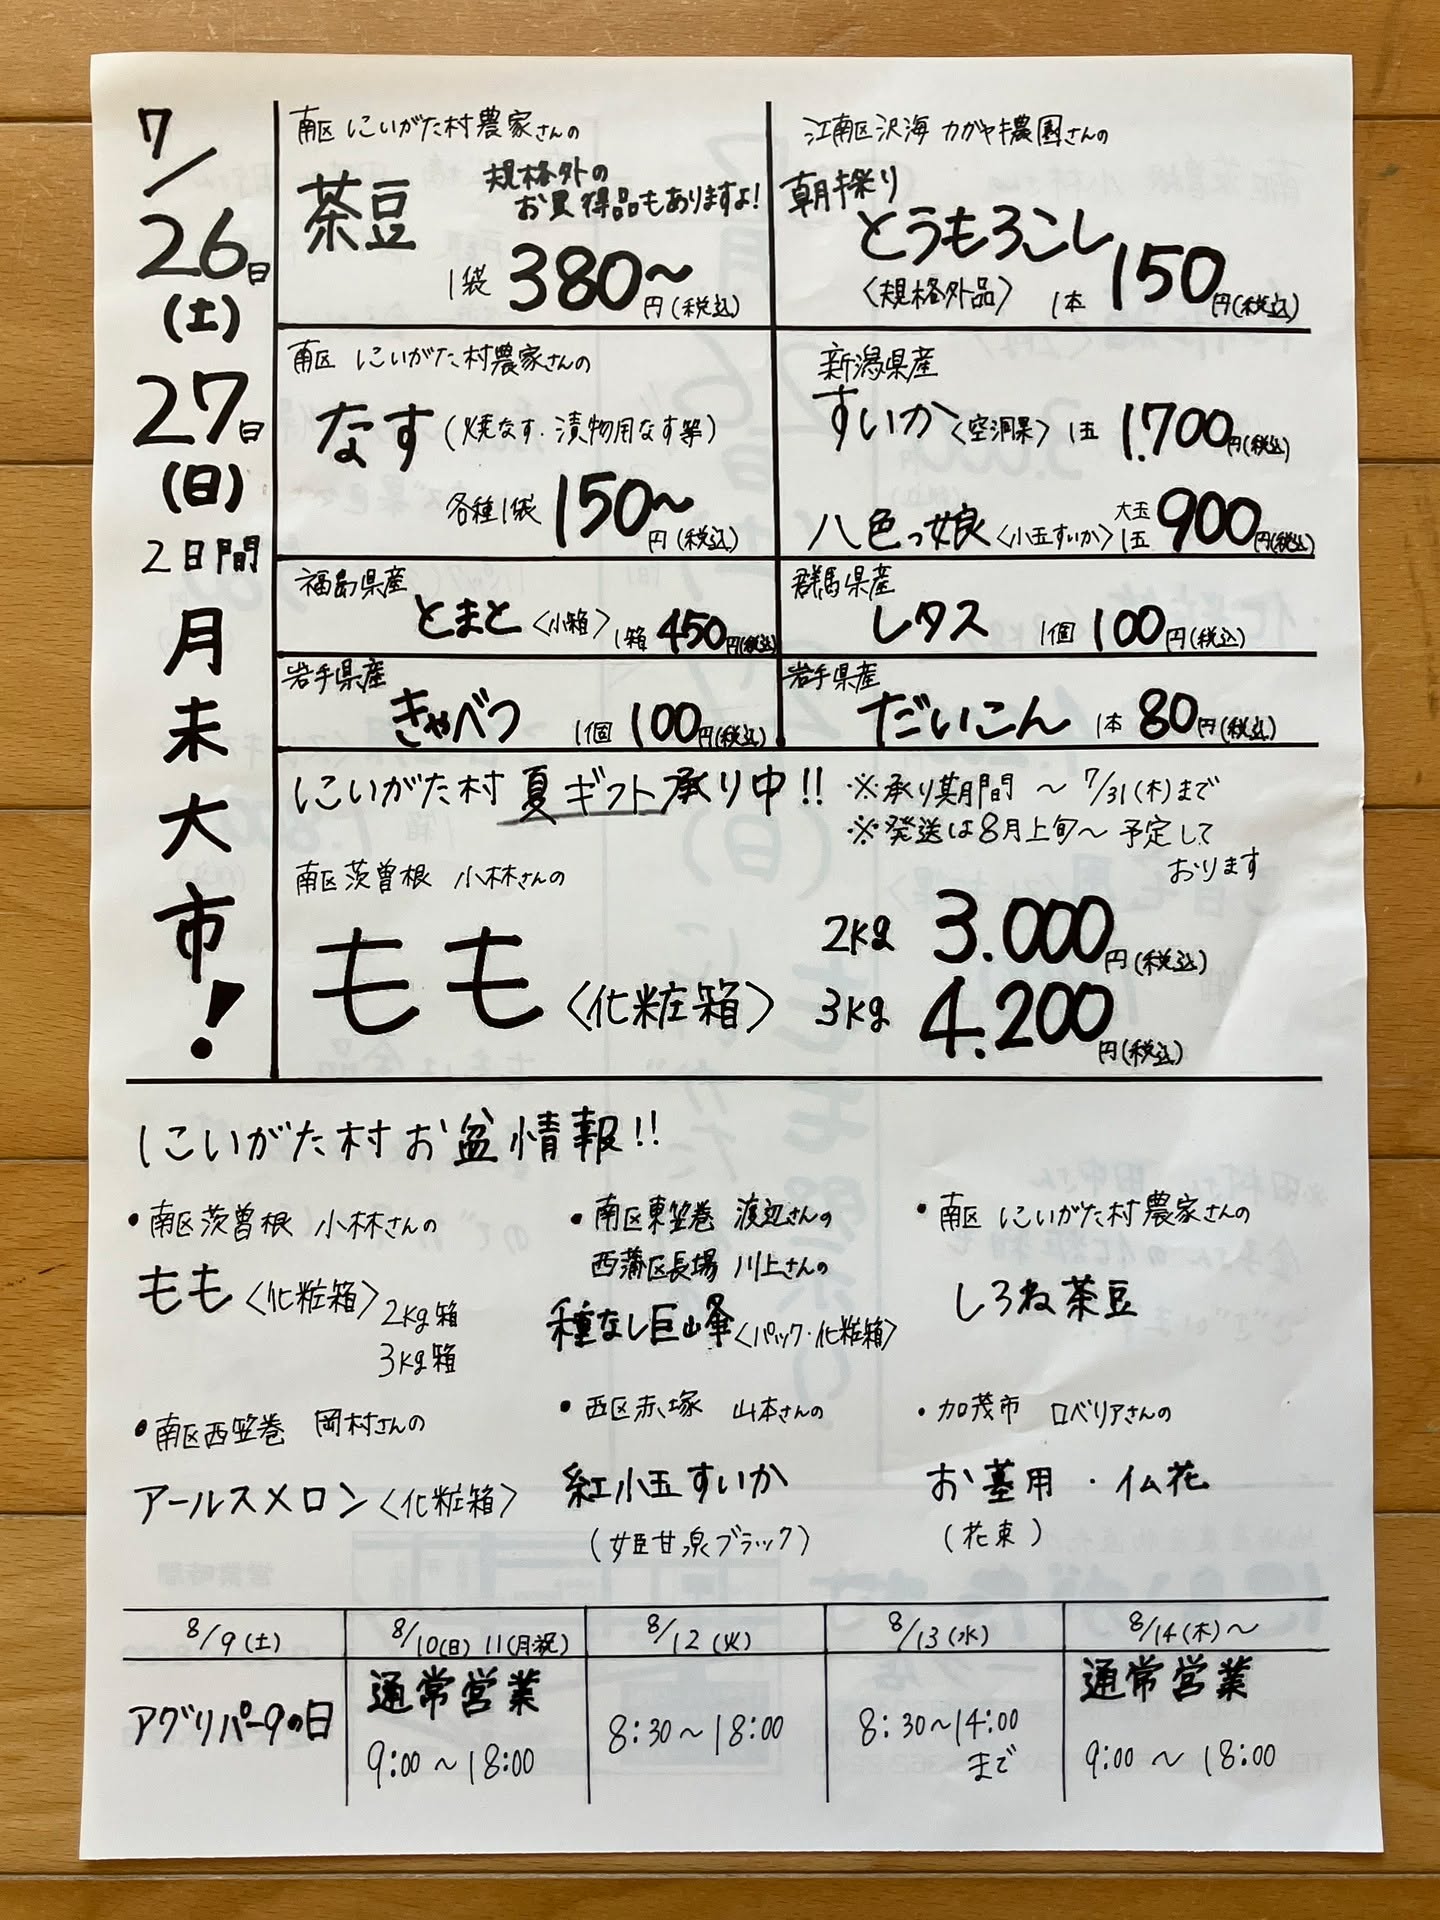 7/26日(土)
27日(日)
2日間
月末大市!
南区 にいがた村農家さんの
茶豆
規格外の
お買得品もありますよ!
1袋 380〜円(税込)
江南区沢海 カガヤキ農園さんの
朝採り
とうもろこし
〈規格外品〉 1本 150円(税込)
南区 にいがた村農家さんの
なす(焼なす・漬物用なす等)
各種1袋 150〜円(税込)
新潟県産
すいか〈空洞果〉 1玉 1.700円(税込)
八色っ娘〈小玉すいか〉 大玉1玉 900円(税込)
福島県産
とまと〈小箱〉 1箱 450円(税込)
群馬県産
レタス 1個 100円(税込)
岩手県産
きゃべつ 1個 100円(税込)
岩手県産
だいこん 1本 80円(税込)
にいがた村 夏ギフト承り中!!
※承り期間 〜 7/31(木)まで
※発送は8月上旬〜予定して
おります
南区茨曽根 小林さんの
もも〈化粧箱〉
2kg 3.000円(税込)
3kg 4.200円(税込)
にいがた村お盆情報!!
•南区茨曽根 小林さんの
もも〈化粧箱〉2kg箱
3kg箱
•南区東笠巻 渡辺さんの
西蒲区長場 川上さんの
種なし巨峰〈パック・化粧箱〉
•南区 にいがた村農家さんの
しろね茶豆
•南区西笠巻 岡村さんの
アールスメロン〈化粧箱〉
•西区赤塚 山本さんの
紅小玉すいか
(姫甘泉ブラック)
•加茂市 ロベリアさんの
お墓用・仏花
(花束)
8/9(土)
アグリパークの日
8/10(日) 11(月・祝)
通常営業
9:00〜18:00
8/12(火)
8:30〜18:00
8/13(水)
8:30〜14:00
まで
8/14(木)〜
通常営業
9:00〜18:00